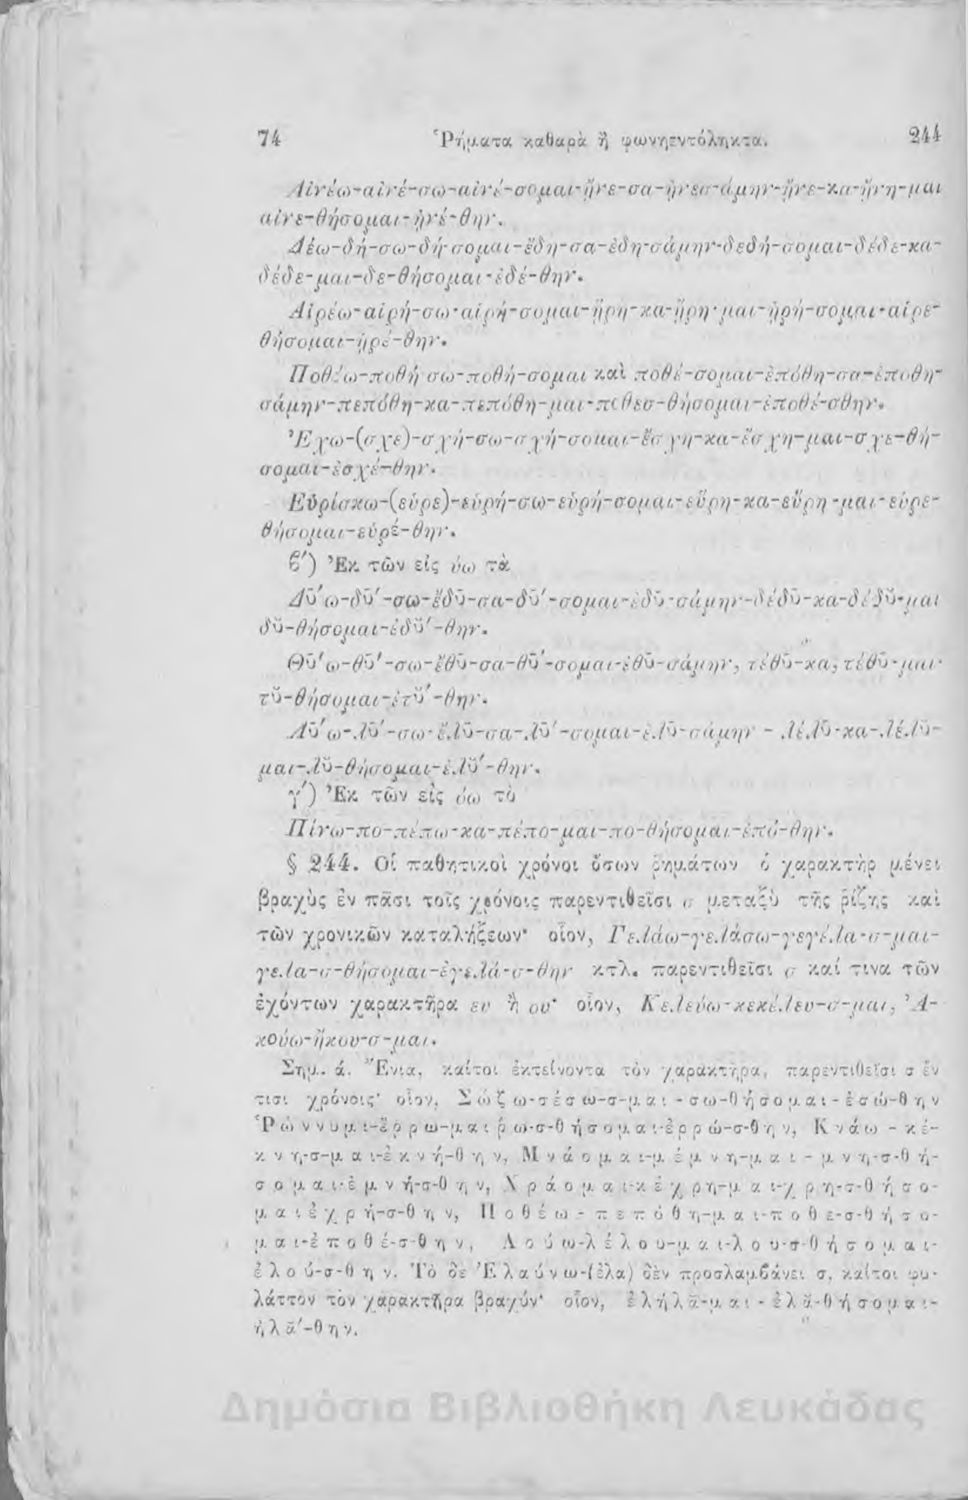 74 Ῥήματα καθαρὰ ἢ φωνηεντόληκτα. 244
Αἰνέω-αἰνέ-σω-αἰνέ-σομαι-ᾔνε-σα-ᾐνεσ-άμην-ᾔνε-κα-ᾔνη-μαι
αἰνε-θήσομαι-ᾐνέ-θην.
Δέω-δή-σω-δή-σομαι-ἔδη-σα-ἐδη-σάμην-δεδή-σομαι-δέδε-κα-
δέδε-μαι-δε-θήσομαι-ἐδέ-θην.
Αἱρέω-αἱρή-σω-αἱρή-σομαι-ᾕρη-κα-ᾕρη-μαι-ᾑρή-σομαι-αἱρε-
θήσομαι-ᾑρέ-θην.
Ποθέω-ποθή σω-ποθή-σομαι καὶ ποθέ-σομαι-ἐπόθη-σα-ἐποθη-
σάμην-πεπόθη-κα-πεπόθη-μαι-ποθεσ-θήσομαι-ἐποθέ-σθην.
Ἔχω-(σχε)-σχή-σω-σχή-σομαι-ἔσχη-κα-ἔσχη-μαι-σχε-θή-
σομαι-ἐσχέ-θην.
Εὑρίσκω-(εὑρε)-εὑρή-σω-εὑρή-σομαι-εὕρη-κα-εὕρη-μαι-εὑρε-
θήσομαι-εὑρέ-θην.
β′) Ἐκ τῶν εἰς ύω τὰ
Δῡ́ω-δῡ́-σω-ἔδῡ-σα-δῡ́-σομαι-ἐδῡ-σάμην-δέδῡ-κα-δέδῠ-μαι
δῠ-θήσομαι-ἐδῠ́-θην.
Θῡ́ω-θῡ́-σω-ἔθῡ-σα-θῡ́-σομαι-ἐθῡ-σάμην, τέθῠ-κα, τέθῠ-μαι-
τῠ-θήσομαι-ἐτῠ́-θην.
Λῡ́ω-λῡ́-σω-ἔλῡ-σα-λῡ́-σομαι-ἐλῡ-σάμην - λέλῠ-κα-λέλῠ-
μαι-λῠ-θήσομαι-ἐλῠ́-θην.
γ′) Ἐκ τῶν εἰς όω τὸ
Πίνω-πο-πέπω-κα-πέπο-μαι-πο-θήσομαι-ἐπό-θην.
§ 244. Οἱ παθητικοὶ χρόνοι ὅσων ῥημάτων ὁ χαρακτὴρ μένει
βραχὺς ἐν πᾶσι τοῖς χρόνοις παρεντιθεῖσι σ μεταξὺ τῆς ῥίζης καὶ
τῶν χρονικῶν καταλήξεων· οἷον, Γελάω-γελάσω-γεγέλα-σ-μαι-
γελα-σ-θήσομαι-ἐγελά-σ-θην κτλ. παρεντιθεῖσι σ καί τινα τῶν
ἐχόντων χαρακτῆρα ευ ἢ ου· οἷον, Κελεύω-κεκέλευ-σ-μαι, Ἀ-
κούω-ἤκου-σ-μαι.
Σημ. ά. Ἔνια, καίτοι ἐκτείνοντα τὸν χαρακτῆρα, παρεντιθεῖσι σ ἔν
τισι χρόνοις· οἷον, Σώζω-σέσω-σ-μαι-σω-θήσομαι-ἐσώ-θην
Ῥώννυμι-ἔρρω-μαι ῥω-σ-θήσομαι-ἐρρώ-σ-θην, Κνάω - κέ-
κνη-σ-μαι-ἐκνή-θην, Μνάομαι-μέμνη-μαι - μνη-σ-θή-
σομαι-ἐμνή-σ-θην, Χράομαι-κέχρη-μαι-χρη-σ-θήσο-
μαι ἐχρή-σ-θην, Ποθέω - πεπόθη-μαι-ποθε-σ-θήσο-
μαι-ἐποθέ-σ-θην, Λούω-λέλου-μαι-λου-σ-θήσομαι-
ἐλού-σ-θην. Τὸ δὲ Ἐλαύνω-(ἐλα) δὲν προσλαμβάνει σ, καίτοι φυ-
λάττον τὸν χαρακτῆρα βραχύν· οἷον, ἐλήλᾰ-μαι - ἐλᾰ-θήσομαι-
ἠλᾰ́-θην.
Δημόσια Βιβλιοθήκη Λευκάδας